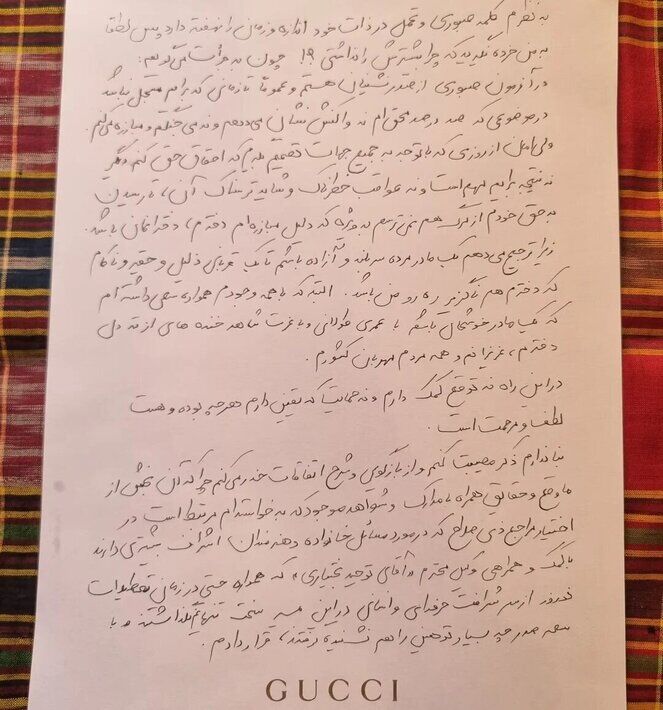 به نظرم کلمه صبوری و تحمل در ذات خود اندازه و زمانی را نهفته دارد پس لطفا
به من خرده نگیرید که چرا بیشترش را نداشتی !؟ چون به جرأت می گویم:
در آزمون صبوری از صدرنشینان هستم و عموماً تا زمانی که برایم مسجل نباشد
در موضوعی که صد درصد محق ام نه واکنش نشان می دهم و نه می جنگم و مبارزه می کنم
ولی امان از روزی که با توجه به جمیع جهات تصمیم بگیرم که احقاق حق کنم دیگر
نه نتیجه برایم مهم است و نه عواقب خطرناک و شاید ترسناک آن، تا رسیدن
به حق خودم از مرگ هم نمی ترسم به ویژه که دلیل مبارزه ام دخترم، دخترانمان باشد.
زیرا ترجیح می دهم یک مادر مرده سربلند و آزاده باشم تا یک قربانی ذلیل و حقیر و ناکام
که دخترم هم ناگزیر ره رو من باشد. البته که با همه وجودم همواره سعی داشته ام
که یک مادر خوشحال باشم با عمری طولانی و با عزت شاهد خنده های از ته دل
دخترم، عزیزانم و همه مردم مهربان کشورم.
در این راه نه توقع کمک دارم و نه حمایت که یقین دارم هرچه بوده و هست
لطف و مرحمت است.
بنا ندارم ذکر مصیبت کنم و از بازگویی و شرح اتفاقات حذر می کنم چرا که آن بخش از
ماوقع و حقایق همراه با مدارک و شواهد موجود که به خواسته ام مرتبط است در
اختیار مراجع ذی صلاح که در مورد مسائل خانواده هنرمندان اشراف بیشتری دارند
با کمک و همراهی وکیل محترم «آقای توحید بختیاری» که همواره حتی در زمانی تعطیلات
نوروز از سر شرافت حرفه ای و انسانی در این مسیر سخت تنهایم نگذاشتند و با
سعه صدر چه بسیار توهین را هم نشنیده گرفتند، قرار دادم.
GUCCI